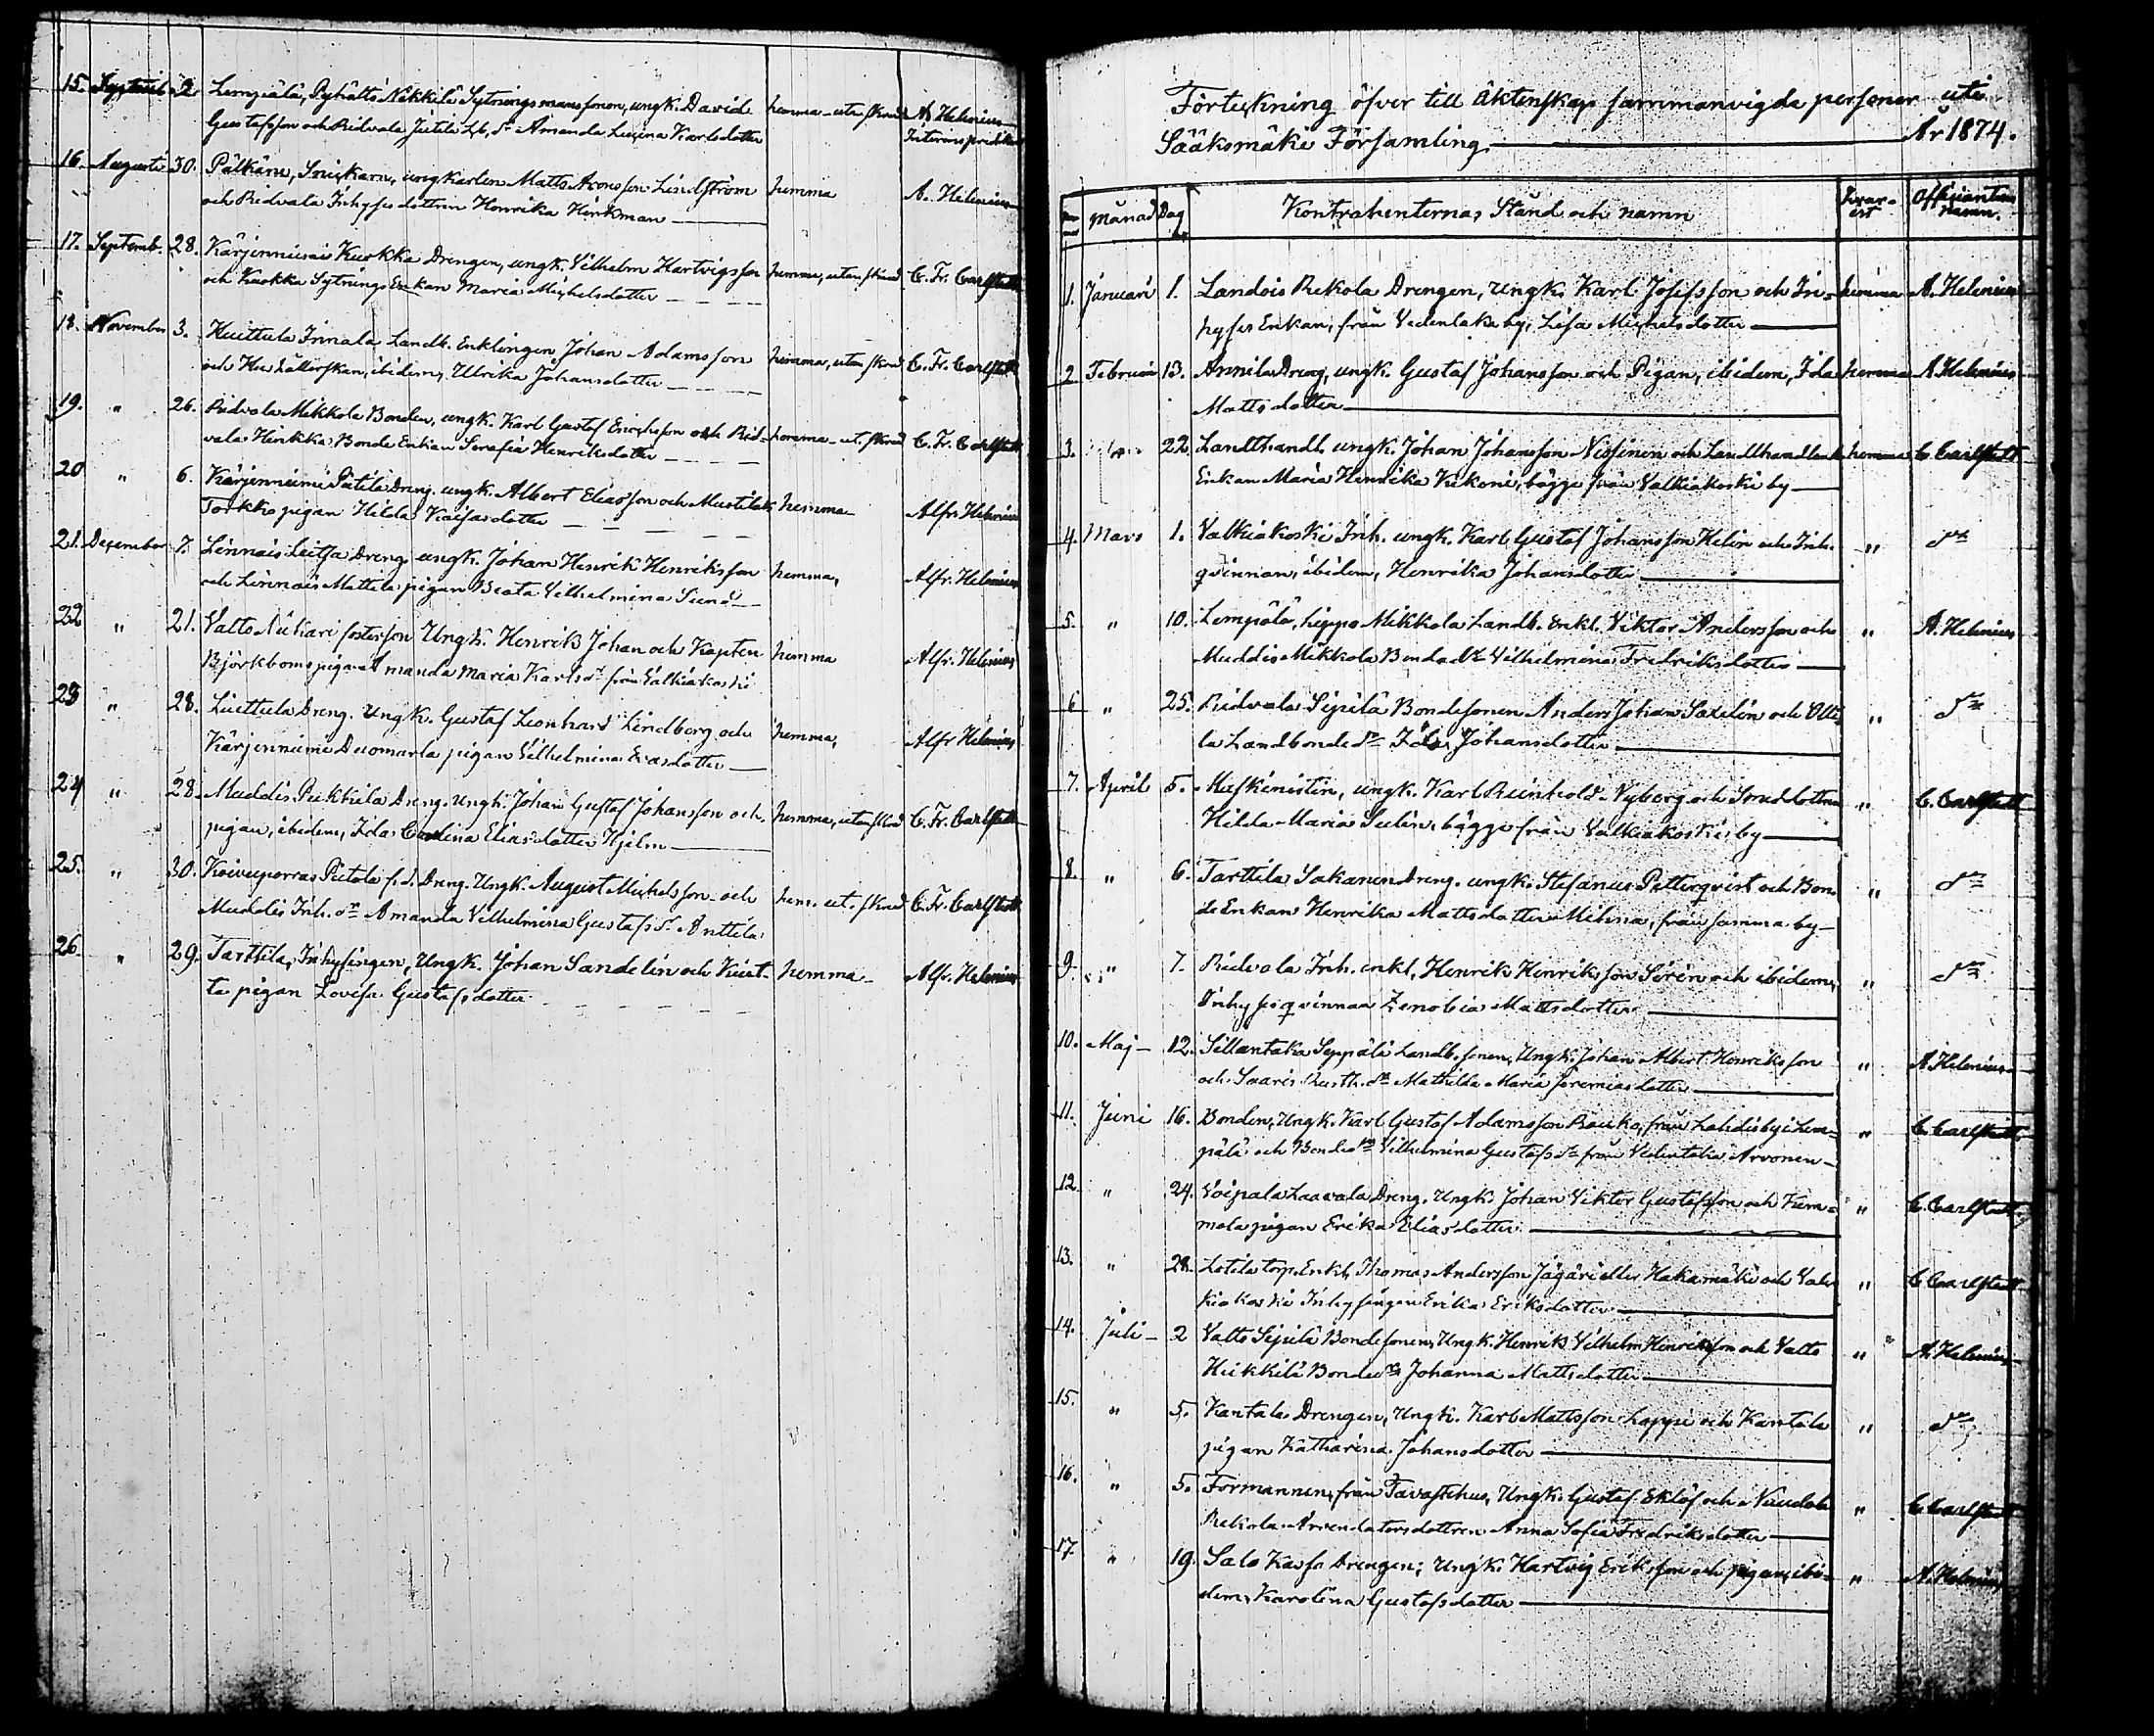 15. Septemb. 2. Lempäälä, Pyhältö Nikkilä Sytningsmanssonen, ungk. David hemma utan skrud A. Helenius
Gustafsson och Ridvala Jutila Lb. dr Amanda Lucina Karlsdotter
16. Augusti 30. Pälkäne, ungkarlen Matts Aronsson Lindström hemma A. Helenius
och Ridvala Inhyses dottren Henrika Hinkman
17. Septemb. 28. Kärjenniemi Kuokka Drengen, ungk. Vilhelm Hartvigsson hemma, utan skrud C. Fr. Carlstedt
och Kuokka Sytnings Enkan Maria Michelsdotter
18. November 3. Huittula Innala Landb. Enklingen Johan Adamsson hemma, utan skrud C. Fr. Carlstedt
och Hushållerskan, ibidem, Ulrika Johansdotter
19. " 26. Ridvala Mikkola Bonden, ungk. Karl Gustaf Ericsson och Rid- hemma ut. skrud C. Fr. Carlstedt
vala Hinkka Bonde Enkan Serafia Henriksdotter
20 " 6. Kärjenniemi Pätilä Dreng. ungk. Albert Eliasson och Mustila hemma Alfr. Helenius
Torkko pigan Hilda Kaisasdotter
21. December 7. Linnais Dreng ungk. Johan Henrik Henriksson hemma, Alfr. Helenius
och Linnais Mattila pigan Beata Vilhelmina
22 " 21. Valto fosterson Ungk. Henrik Johan och Kapten hemma Alfr. Helenius
Björkboms pigan Amanda Maria Karls dr från Valkiakoski
23 " 28. Liuttula Dreng. Ungk. Gustaf Leonhard Lindberg och hemma, Alfr Helenius
Kärjenniemi Duomarla pigan Vilhelmina Evasdotter
24 " 28. Muddis Pukkila Dreng. Ungk. Johan Gustaf Johansson och hemma, utan skrud C. Fr. Carlstedt
pigan, ibidem, Ida Carolina Eliasdotter Hjelm
25. " 30. Koivuporras Pietola f. d. Dreng. Ungk. August Michelsson och hem. ut. skrud C. Fr. Carlstedt
Muddis Inh. dr Amanda Vilhelmina Gustafs dr Anttila
26 " 29. Tarttila, Inhysingen, Ungk. Johan Sandelin och hemma Alfr. Helenius
ta pigan Lovisa Gustafsdotter
Förteckning öfver till Äktenskap sammanvigda personer uti
Sääksmäki Församling År 1874.
månad Dag Kontrahenternas Stånd och namn hvarest Officiantens namn.
1. Januari 1. Landois Rekola Drengen, Ungk. Karl Josefsson och In- hemma A. Helenius
hyses Enkan, från Vedentaka by, Lisa Michelsdotter
2 Februari 13. Annila Dreng, ungk. Gustaf Johansson och Pigan, ibidem, Ida hemma A. Helenius
Mattsdotter
3. 22. Landthandl. ungk. Johan Johansson Nissinen och Landthandl. hemma C. Carlstedt
Enkan Maria Henrika Kekoni, bägge från Valkiakoski by
4. Mars 1. Valkiakoski Inh. ungk. Karl Gustaf Johansson Helin och Inh. " dr
qvinnan, ibidem, Henrika Johansdotter
5. " 10. Lempälä, Lippo Mikkola Landb. Enkl. Viktor Andersson och " A. Helenius
Muddis Mikkola Bonde dr Vilhelmina Fredriksdotter
6 " 25. Ridvala Sipilä Bondesonen Anders Johan Saxelin och Otti " dr
la Landbonde dr Ida Johansdotter
7. April 5. Maskinisten, ungk. Karl Reinhold Nyberg och " C. Carlstedt
Hilda Maria Sulin, bägge från Valkiakoski by
8. " 6. Tarttila Sakanen Dreng. ungk. Stefanus Petterqvist och Bon- " dr
de Enkan Henrika Mattsdotter Milina, från samma by
9. " 7. Ridvala Inh. enkl. Henrik Henriksson Sirén och ibidem, " dr
Inhysesqvinnan Zenobia Mattsdotter
10. Maj 12. Sillantaka Seppälä Landb. sonen, Ungk. Johan Albert Henriksson " A. Helenius
och Saaris Rusth. dr Mathilda Maria Jeremiasdotter
11. Juni 16. Bonden, Ungk. Karl Gustaf Adamsson Rauko, från Lahdis by i Lem- " C. Carlstedt
pälä och Bonde dr Vilhelmina Gustafs dr från Vedentaka Arvonen
12 " 24. Voipala Laavala Dreng. Ungk. Johan Viktor Gustafsson och Kem- " C. Carlstedt
mola pigan Erika Eliasdotter
13. " 28. Lotila torp. Enkl. Thomas Andersson Jägäri eller Hakamäki och Val- " C. Carlstedt
kiakoski Inhysingen Erika Eriksdotter
14. Juli 2 Valto Sipilä Bondesonen, Ungk. Henrik Vilhelm Henriksson och Valto " A. Helenius
Heikkilä Bonde dr Johanna Mattsdotter
15. " 5. Kantala Drengen, Ungk. Karl Mattsson Lappi och Kantala " dr
pigan Katharina Johansdotter
16. " 5. Formannen, från Tavastehus, Ungk. Gustaf Eklöf och " C. Carlstedt
Rekola Arrendatorsdottren Anna Sofia Fredriksdotter
17. " 19. Salo Drengen, Ungk. Hartvig Eriksson och pigan, ibi- " A. Helenius
dem, Karolina Gustafsdotter